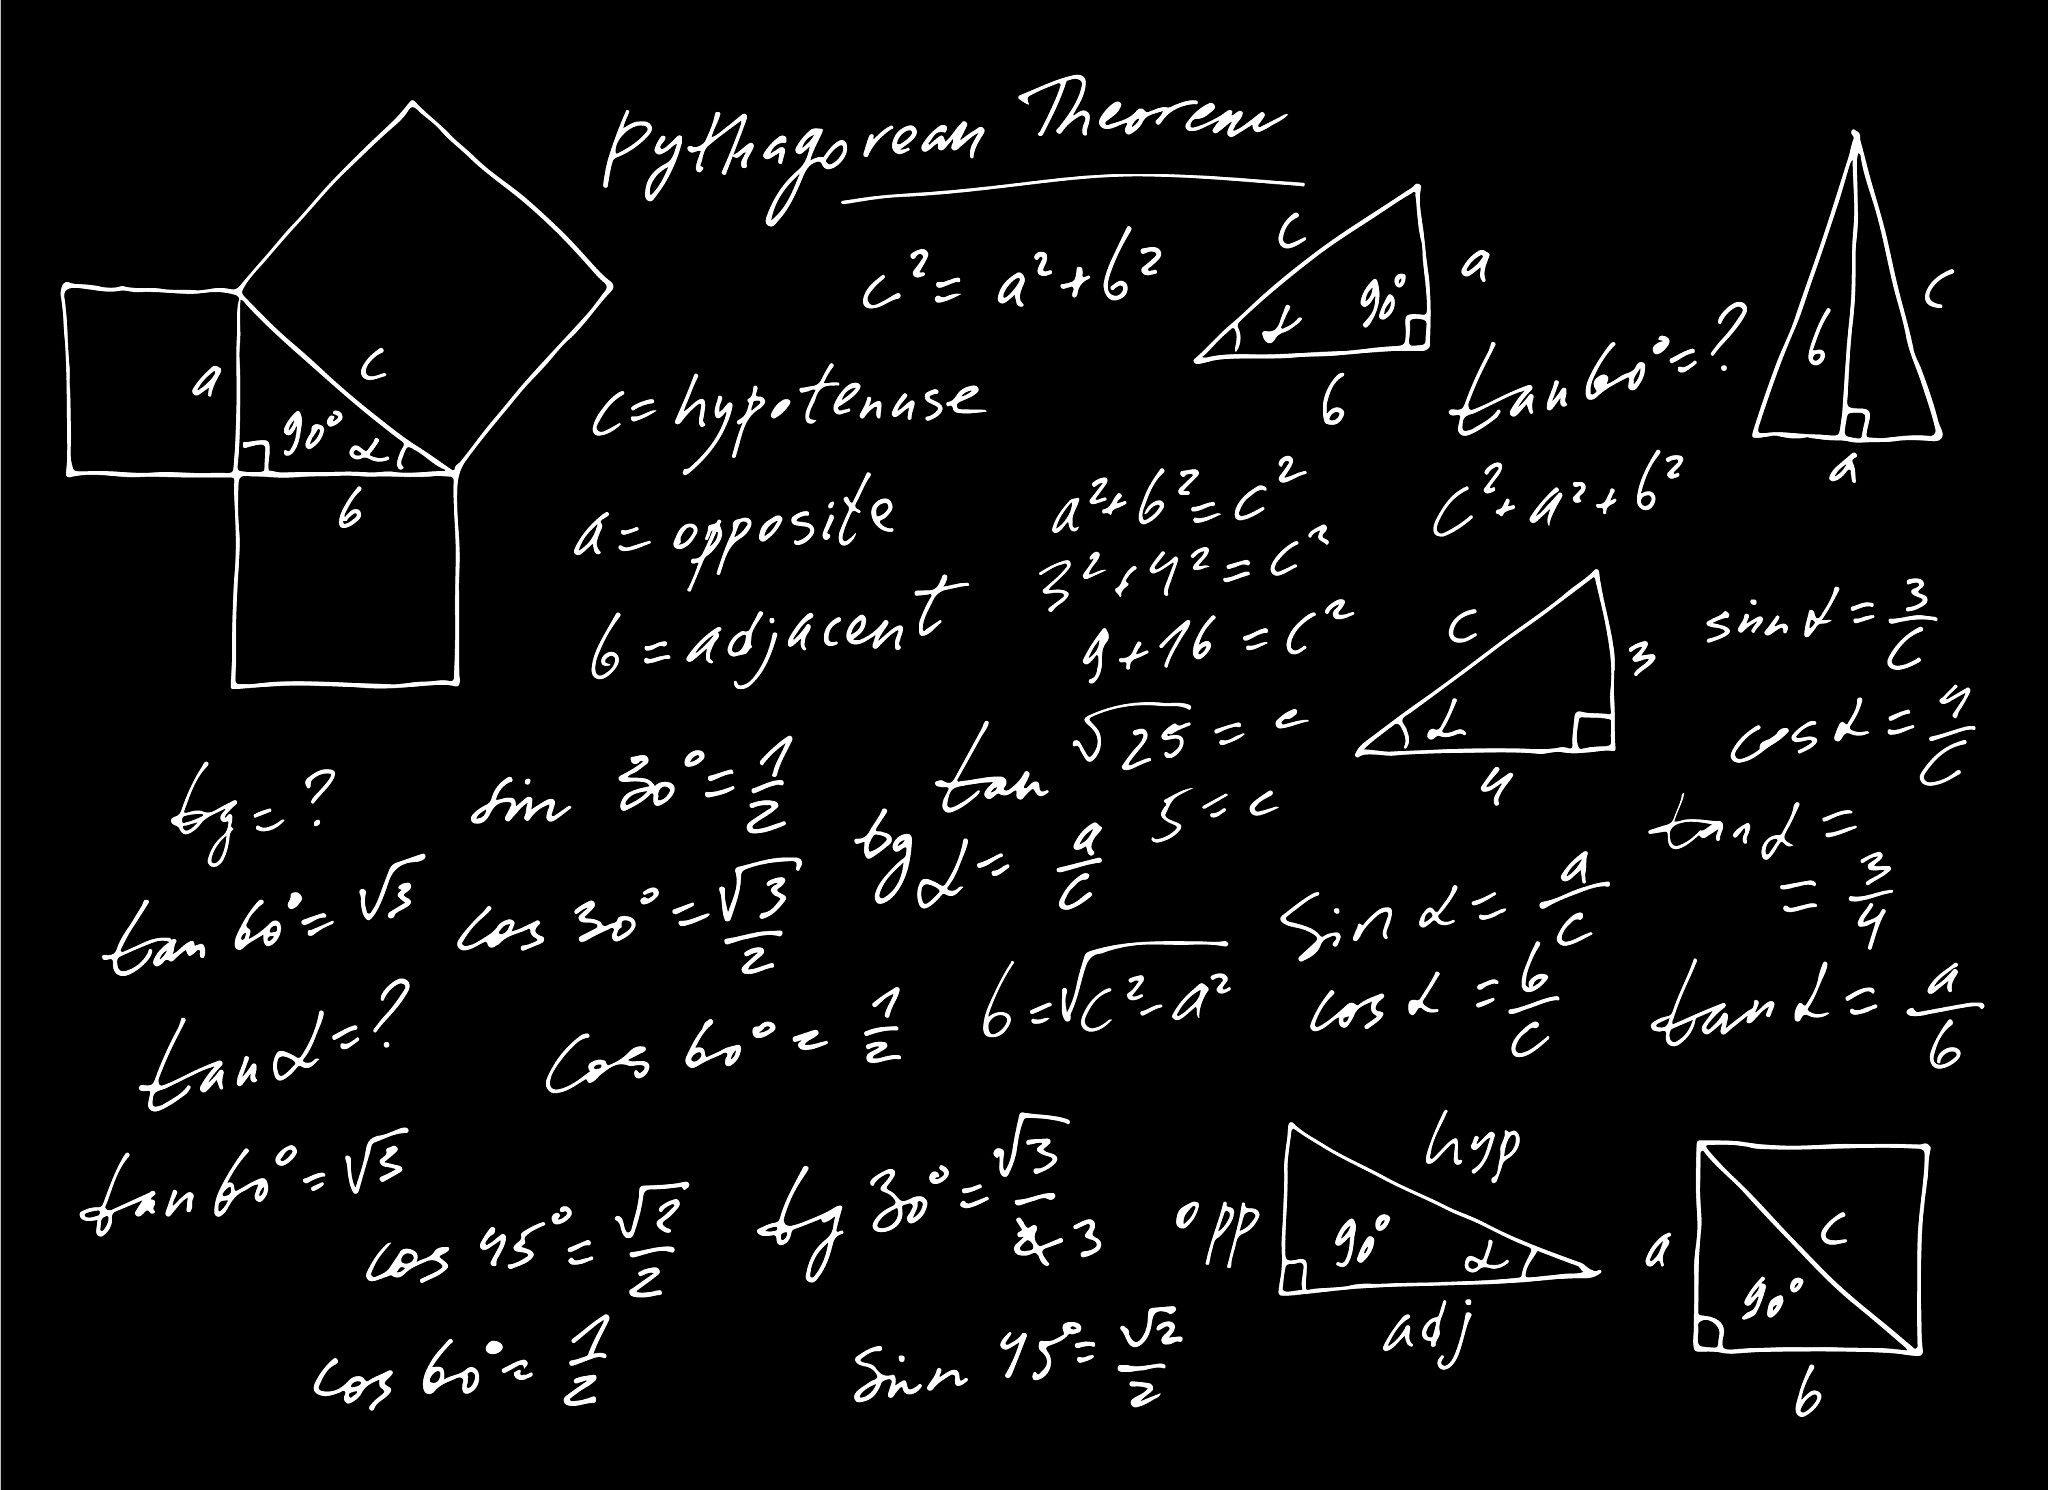 Pythagorean Theorem
c² = a² + b²
c
a
90°
α
b
c
α
90°
a
b
b
c
a
tan 60° = ?
c = hypotenuse
a = opposite
b = adjacent
a² + b² = c²
3² + 4² = c²
9 + 16 = c²
√25 = c
5 = c
c² + a² + b²
c
3
α
4
sin α = 3/c
cos α = 4/c
tan α =
= 3/4
tg = ?
sin 30° = 1/2
tan
tg α = a/c
tan 60° = √3
cos 30° = √3/2
sin α = a/c
tan α = ?
cos 60° = 1/2
b = √c² - a²
cos α = b/c
tan α = a/b
tan 60° = √3
cos 45° = √2/2
tg 30° = √3/3
opp
hyp
90°
α
adj
a
c
90°
b
cos 60° = 1/2
sin 45° = √2/2